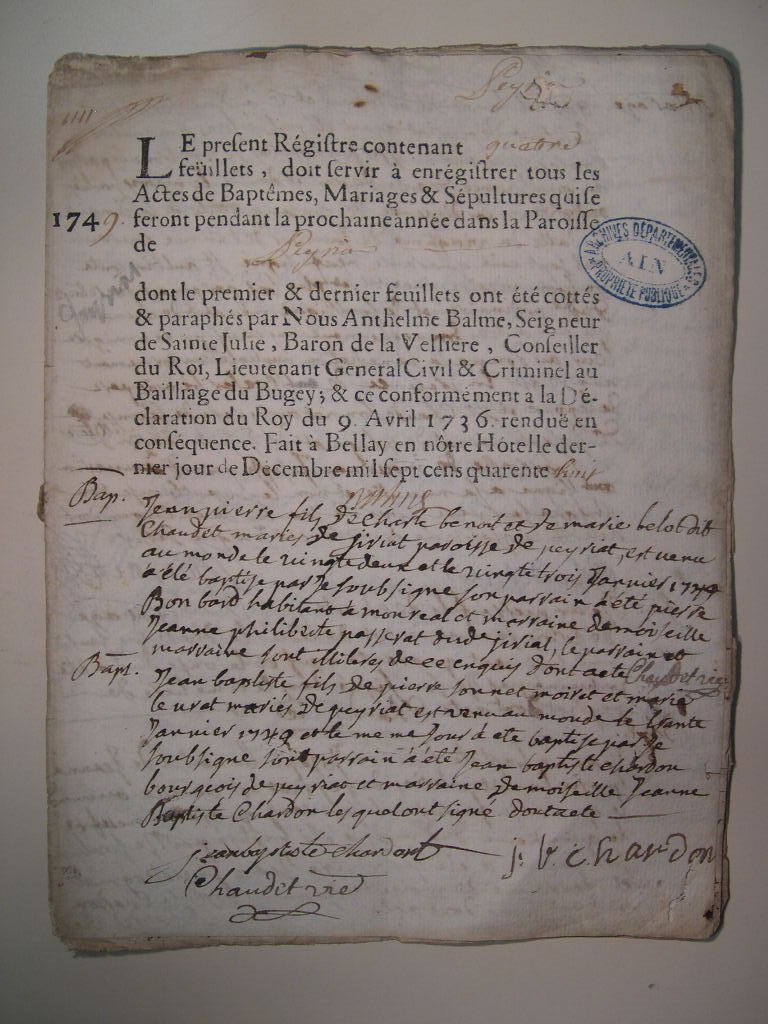 Peyria
LE present Régistre contenant quatorze
feüillets, doit servir à enrégistrer tous les
Actes de Baptêmes, Mariages & Sépultures qui se
1749. feront pendant la prochaine année dans la Paroisse
de Peyria
ARCHIVES DÉPARTEMENTALES
AIN
PROPRIÉTÉ PUBLIQUE
dont le premier & dernier feuillets ont été cottés
& paraphés par Nous Anthelme Balme, Seigneur
de Sainte Julie, Baron de la Vellière, Conseiller
du Roi, Lieutenant General Civil & Criminel au
Bailliage du Bugey; & ce conformément a la Dé-
claration du Roy du 9. Avril 1736. renduë en
conséquence. Fait à Bellay en nôtre Hôtel le der-
nier jour de Décembre mil sept cens quarente huit
Bap. Jean pierre fils de Charle benoit et de marie belot dit
Chaudet mariés de jiriat paroisse de peyriat, est venu
au monde le vingtedeux et le vingtetrois Janvier 1749
a été baptisé par je soubsigné son parrain a été pierre
Bon bard habitant a monreal et marraine demoiselle
Jeanne philiberte passerat dude jiriat, le parrain et
marraine sont illiteres de ce enquis dont acte Chaudet vic
Bapt. Jean baptiste fils de pierre sonnet moiret et marie
le vrat mariés de peyriat est venu au monde le trante
Janvier 1749 et le meme Jour a été baptisé par je
soubsigne son parrain a été Jean baptiste chardon
bourgeois de peyriat et marraine demoiselle Jeanne
Baptiste Chardon les quel ont signé dont acte
jeanbaptiste chardont j. b. chardon
Chaudet vic